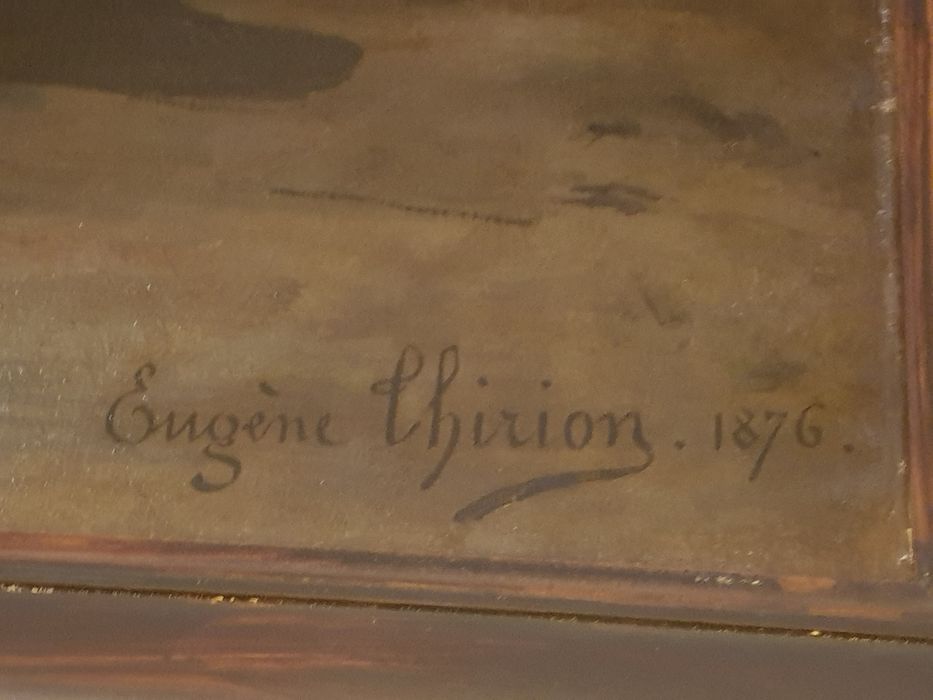 Eugène Thirion. 1876.